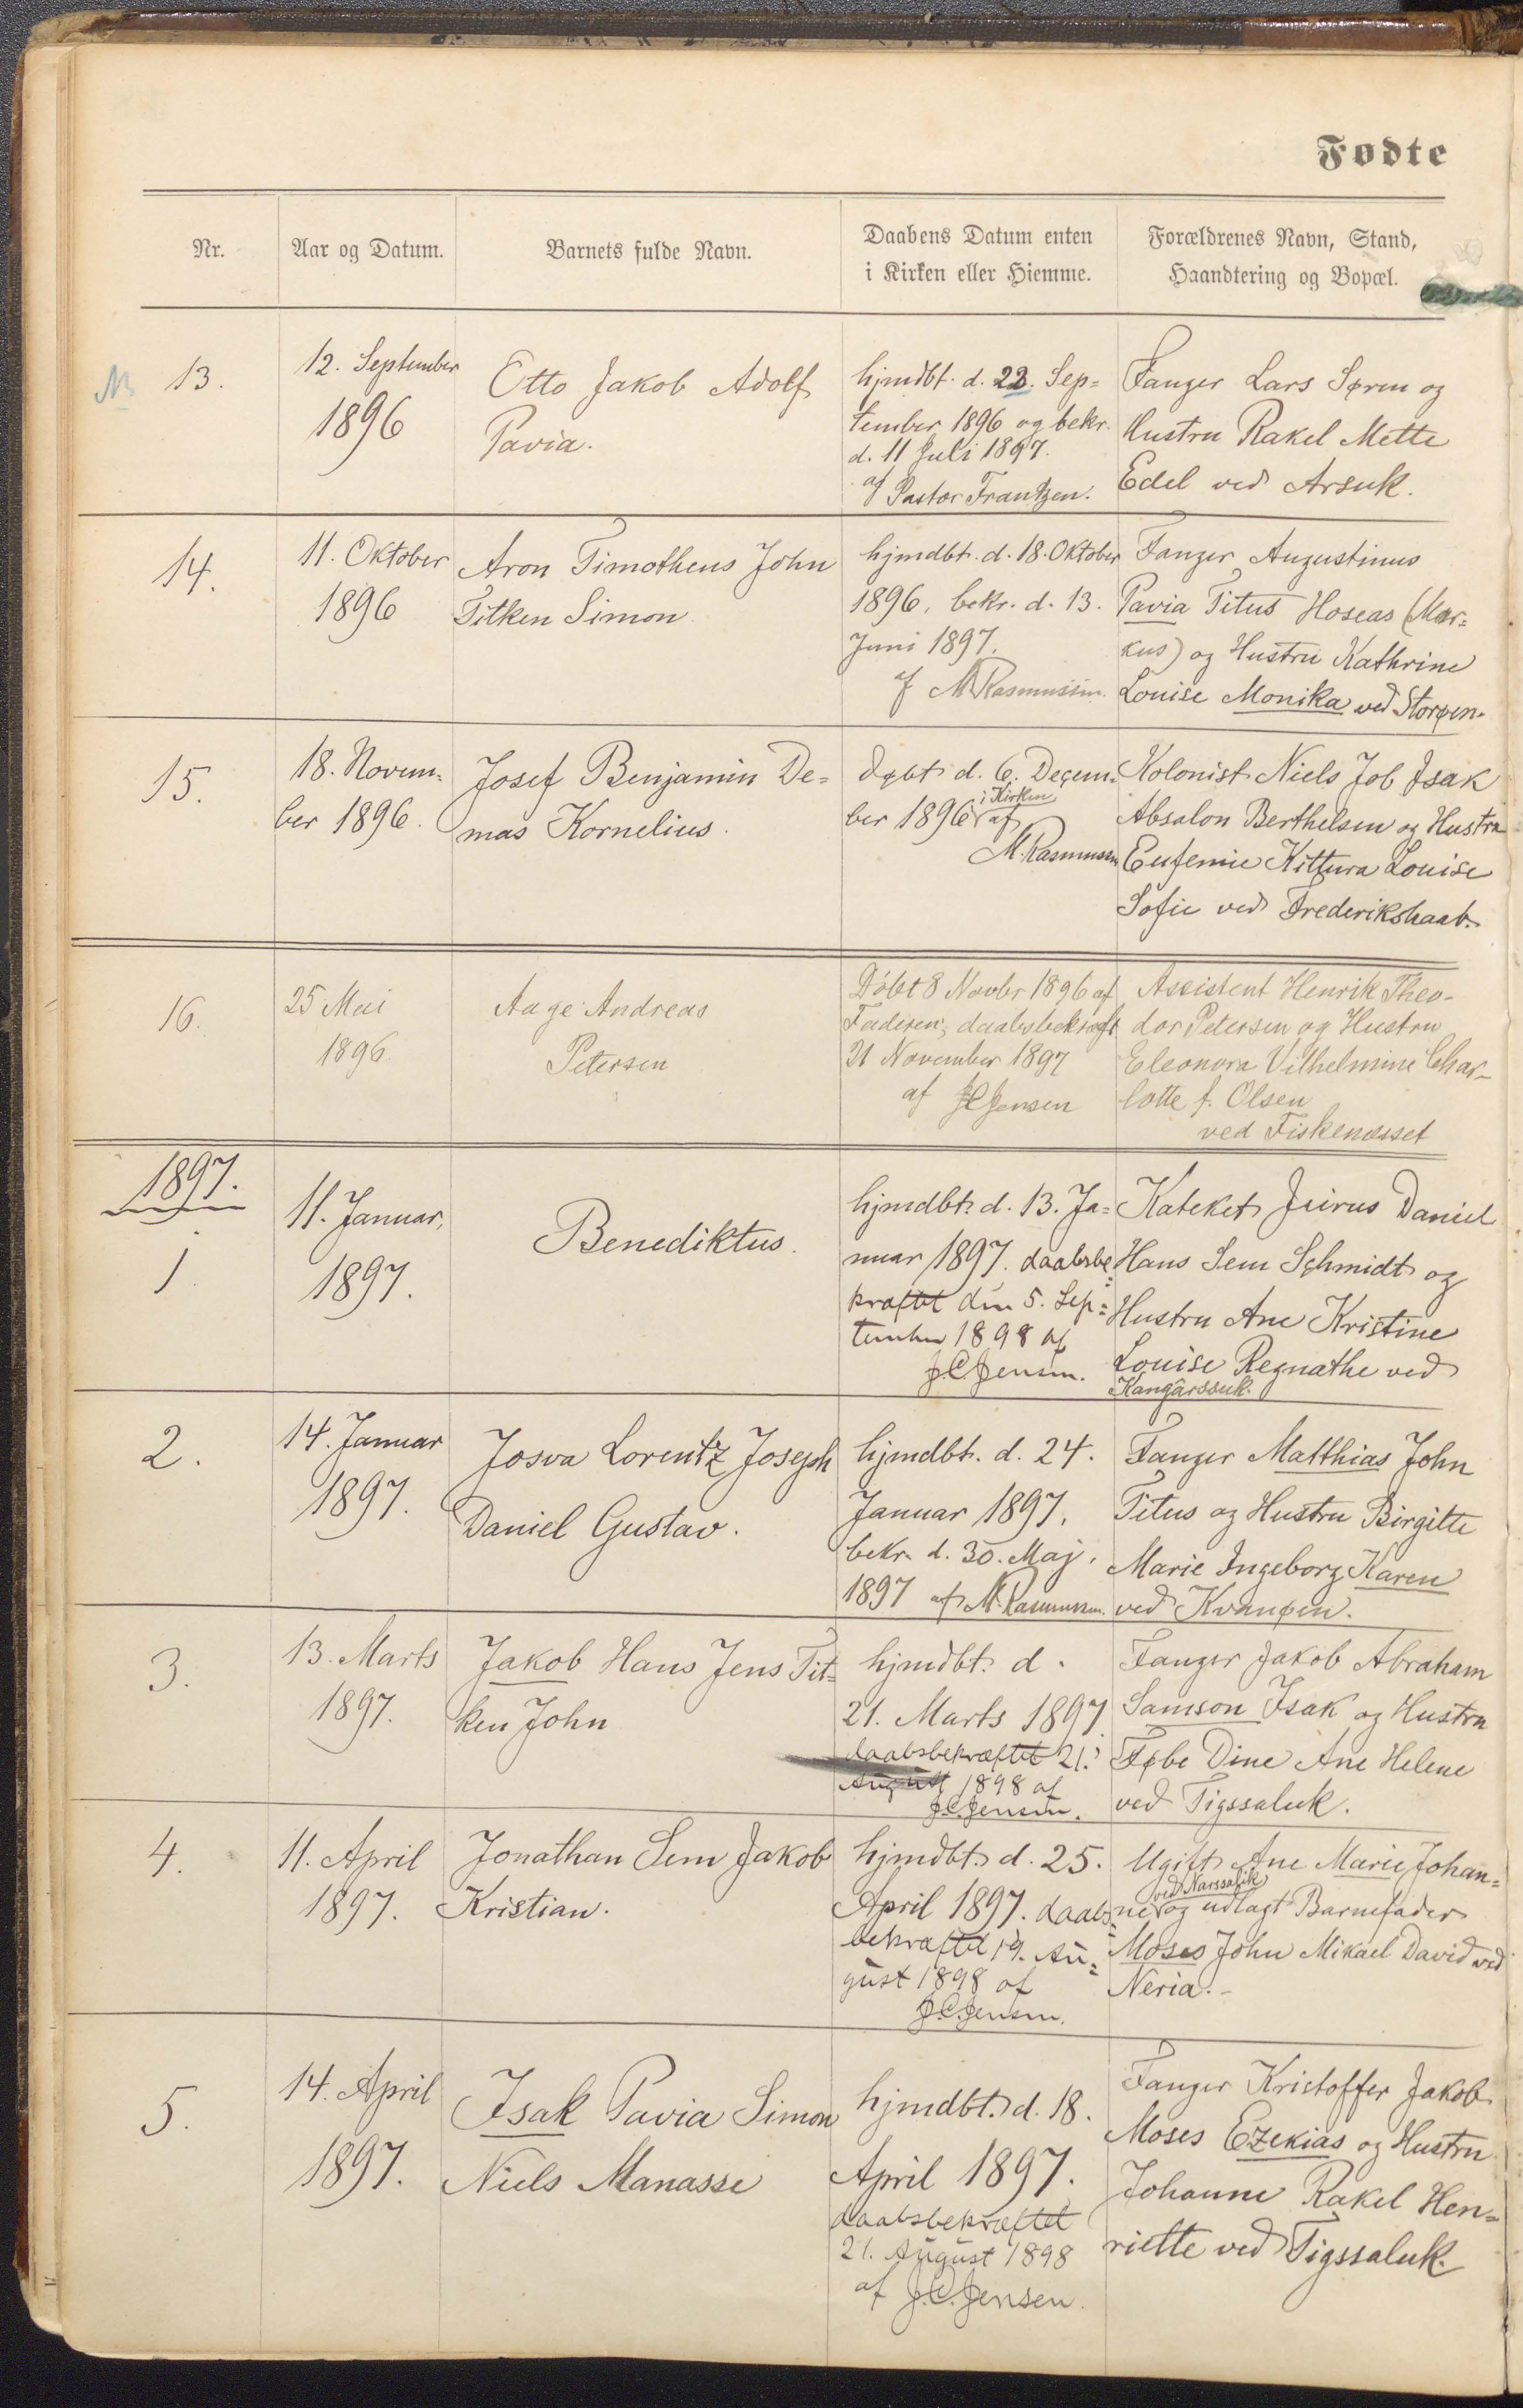 Fødte
Nr.
Aar og Datum.
Barnets fulde Navn.
Daabens Datum enten
i Kirken eller Hiemme.
Forældrenes Navn, Stand,
Haandtering og Bopæl.
13.
12. September
1896
Otto Jakob Adolf
Pavia.
hjmdbt. d. 23. Sep=
tember 1896 og bekr.
d. 11 Juli 1897.
af Pastor Frantzen.
Fanger Lars Søren og
Hustru Rakel Mette
Edel ved Arsuk.
14.
11. Oktober
1896
Aron Timotheus John
Titken Simon
hjmdbt. d. 18. Oktober
1896, bekr. d. 13.
Juni 1897.
af M. Rasmussen.
Fanger Augustinus
Pavia Titus Hoseas (Mar=
kus) og Hustru Kathrine
Louise Monika ved Storøen.
15.
18. Novem=
ber 1896.
Josef Benjamin De=
mas Kornelius.
døbt d. 6. Decem=
ber 1896 i Kirken af
M. Rasmussen
Kolonist Niels Job Isak
Absalon Berthelsen og Hustru
Eufemie Kittura Louise
Sofie ved Frederikshaab.
16.
25 Mai
1896
Aage Andreas
Petersen
Döbt 8 Novbr 1896 af
Faderen; daabsbekræft
21 November 1897
af JCJensen
Assistent Henrik Theo-
dor Petersen og Hustru
Eleonora Vilhelmine Char-
lotte f. Olsen
ved Fiskenæsset
1897.
1
11. Januar,
1897.
Benediktus.
hjmdbt. d. 13. Ja=
nuar 1897. daabsbe=
kræftet den 5. Sep=
tember 1898 af
J.C.Jensen.
Kateket Jairus Daniel
Hans Sem Schmidt og
Hustru Ane Kristine
Louise Regnathe ved
Kangârssuk.
2.
14. Januar
1897.
Josva Lorentz Joseph
Daniel Gustav.
hjmdbt. d. 24.
Januar 1897,
bekr. d. 30. Maj.
1897 af M. Rasmussen.
Fanger Matthias John
Titus og Hustru Birgitte
Marie Ingeborg Karen
ved Kvanøen.
3.
13. Marts
1897.
Jakob Hans Jens Tit=
ken John
hjmdbt. d.
21. Marts 1897
daabsbekræftet 21.
August 1898 af
J.C.Jensen.
Fanger Jakob Abraham
Samson Isak og Hustru
Føbe Dine Ane Helene
ved Tigssaluk.
4.
11. April
1897.
Jonathan Sem Jakob
Kristian.
hjmdbt. d. 25.
April 1897. daabs=
bekræftet 19. Au=
gust 1898 af
J.C.Jensen.
Ugift Ane Marie Johan=
ne ved Narssalik og udlagt Barnefader
Moses John Mikael David ved
Neria.-
5.
14. April
1897.
Isak Pavia Simon
Niels Manasse
hjmdbt. d. 18.
April 1897.
daabsbekræftet
21. August 1898
af J.C.Jensen.
Fanger Kristoffer Jakob
Moses Ezekias og Hustru
Johanne Rakel Hen=
riette ved Tigssaluk.